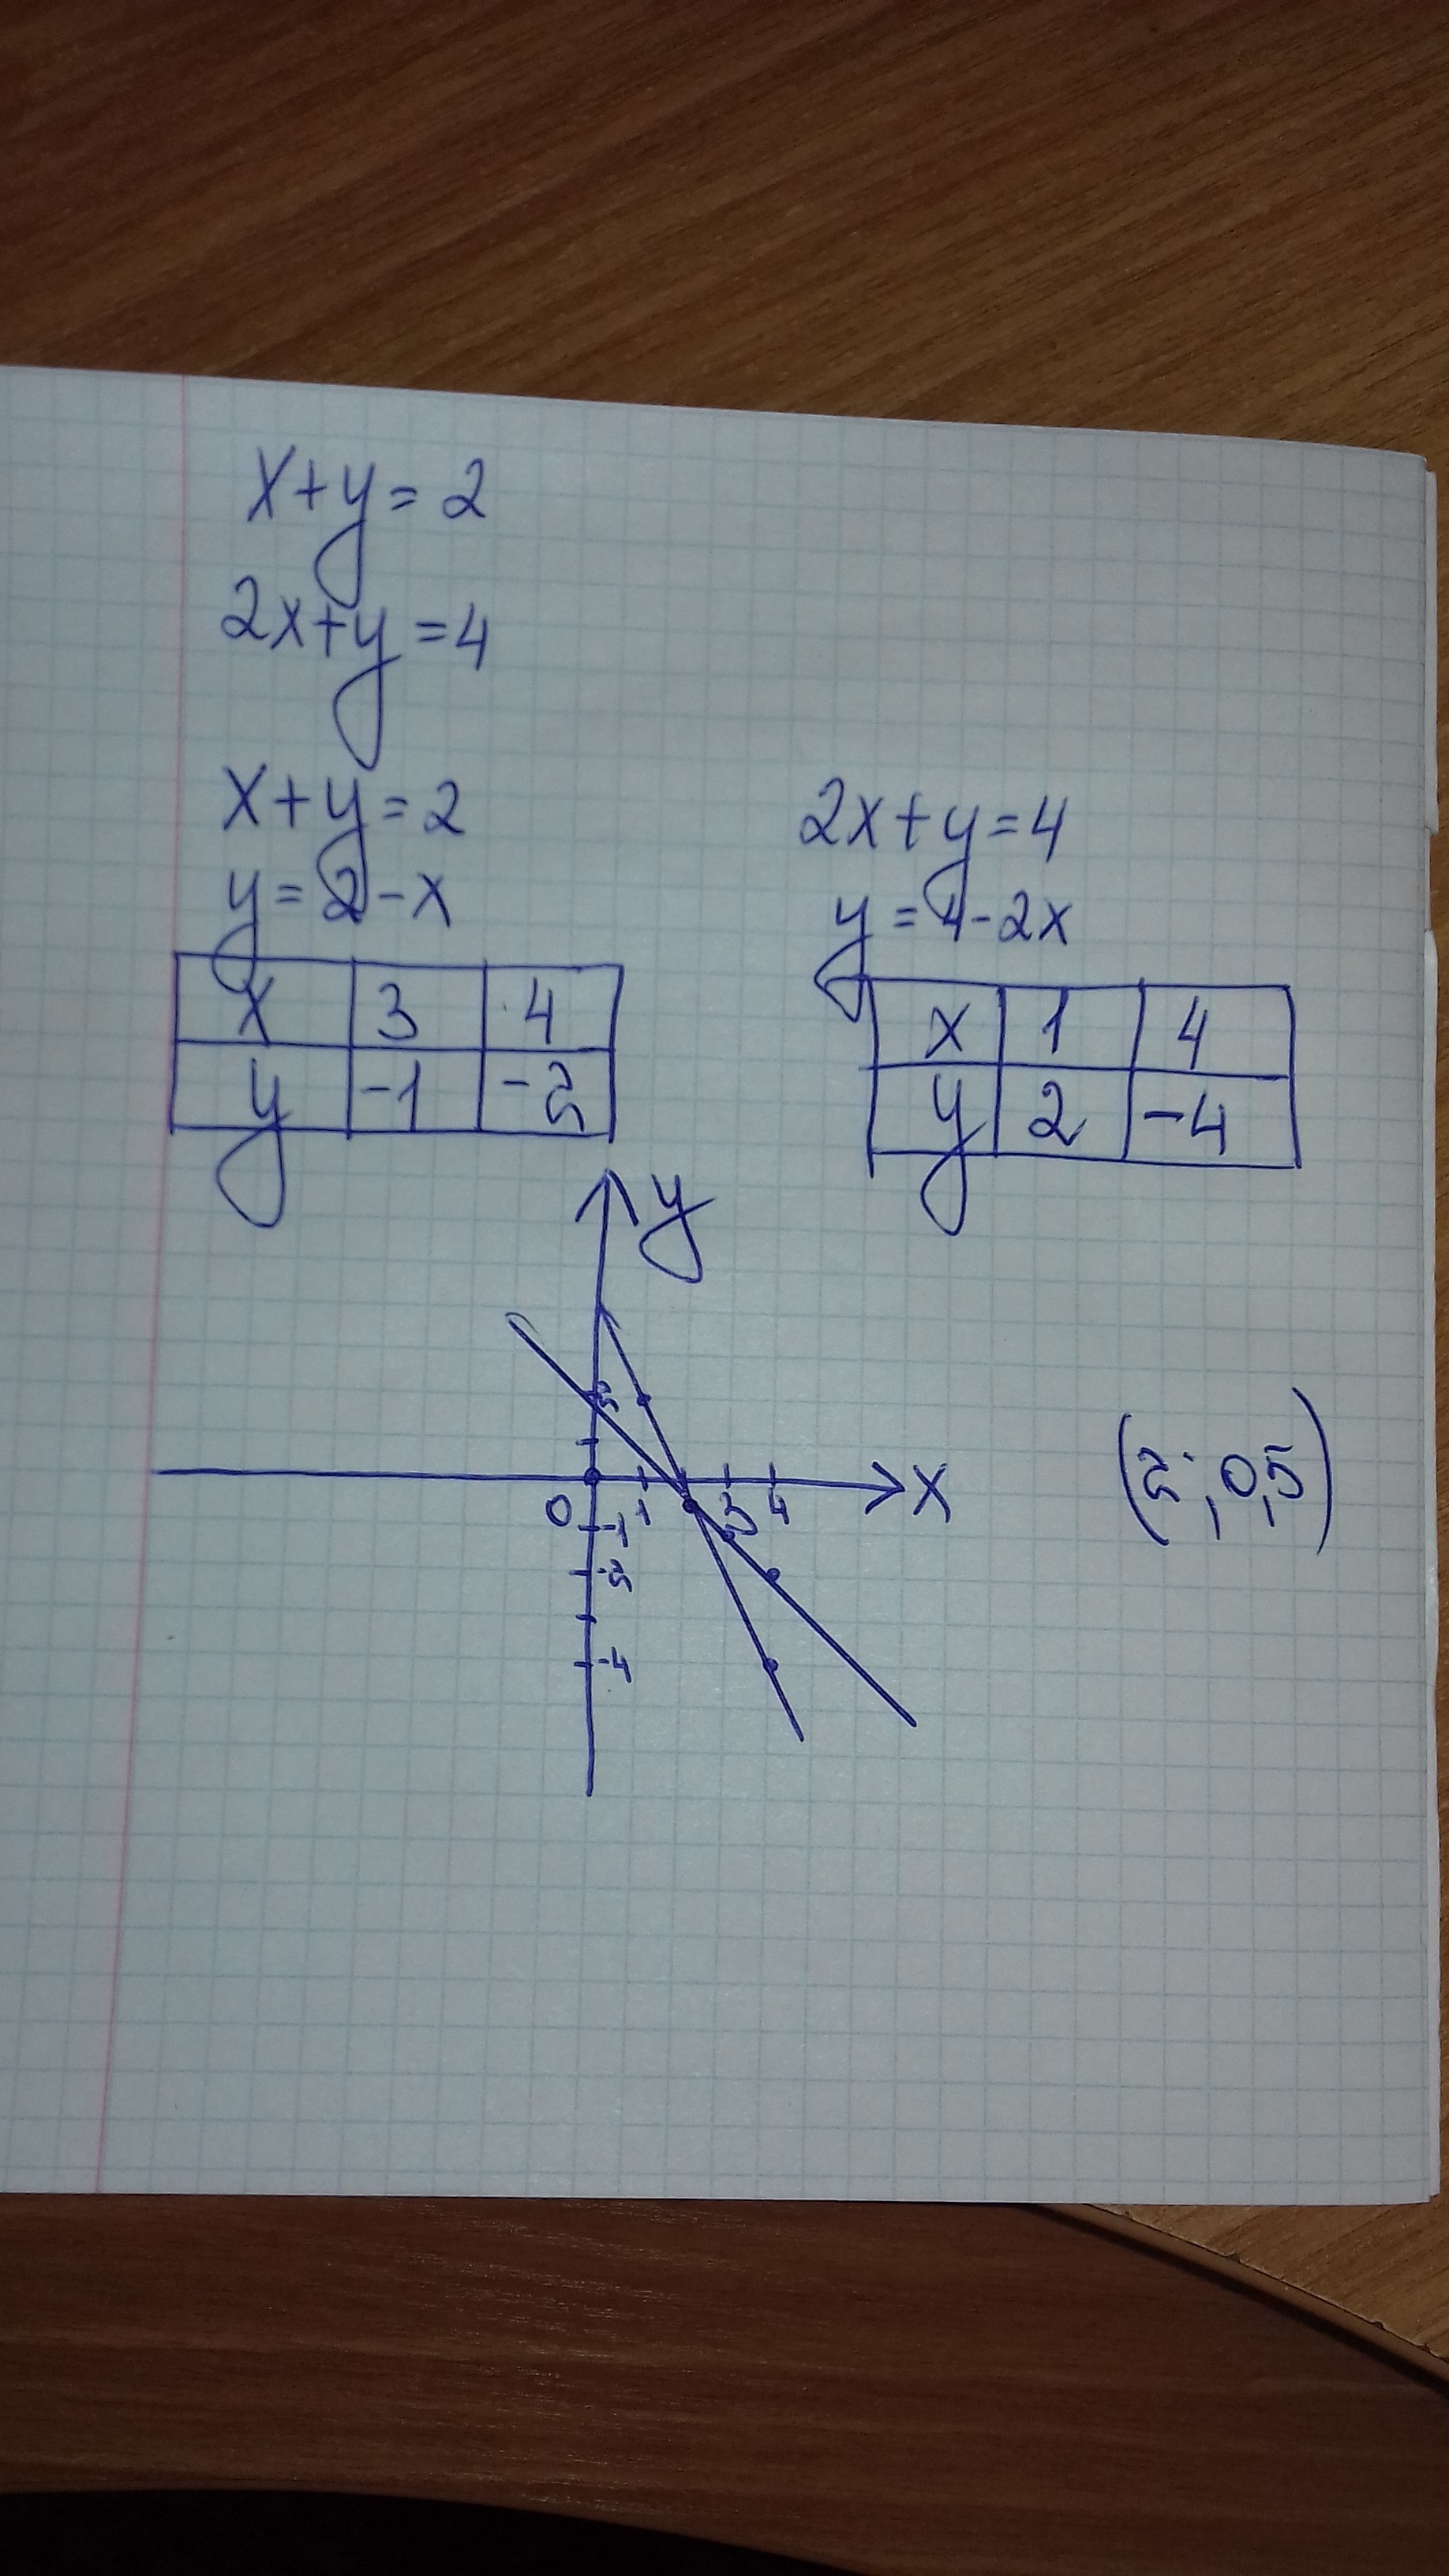 x+y=2
2x+y=4
x+y=2
y=2-x
x 3 4
y -1 -2
2x+y=4
y=4-2x
x 1 4
y 2 -4
y
2
0 1 3 4 x
-1
-2
-4
(2; 0,5)